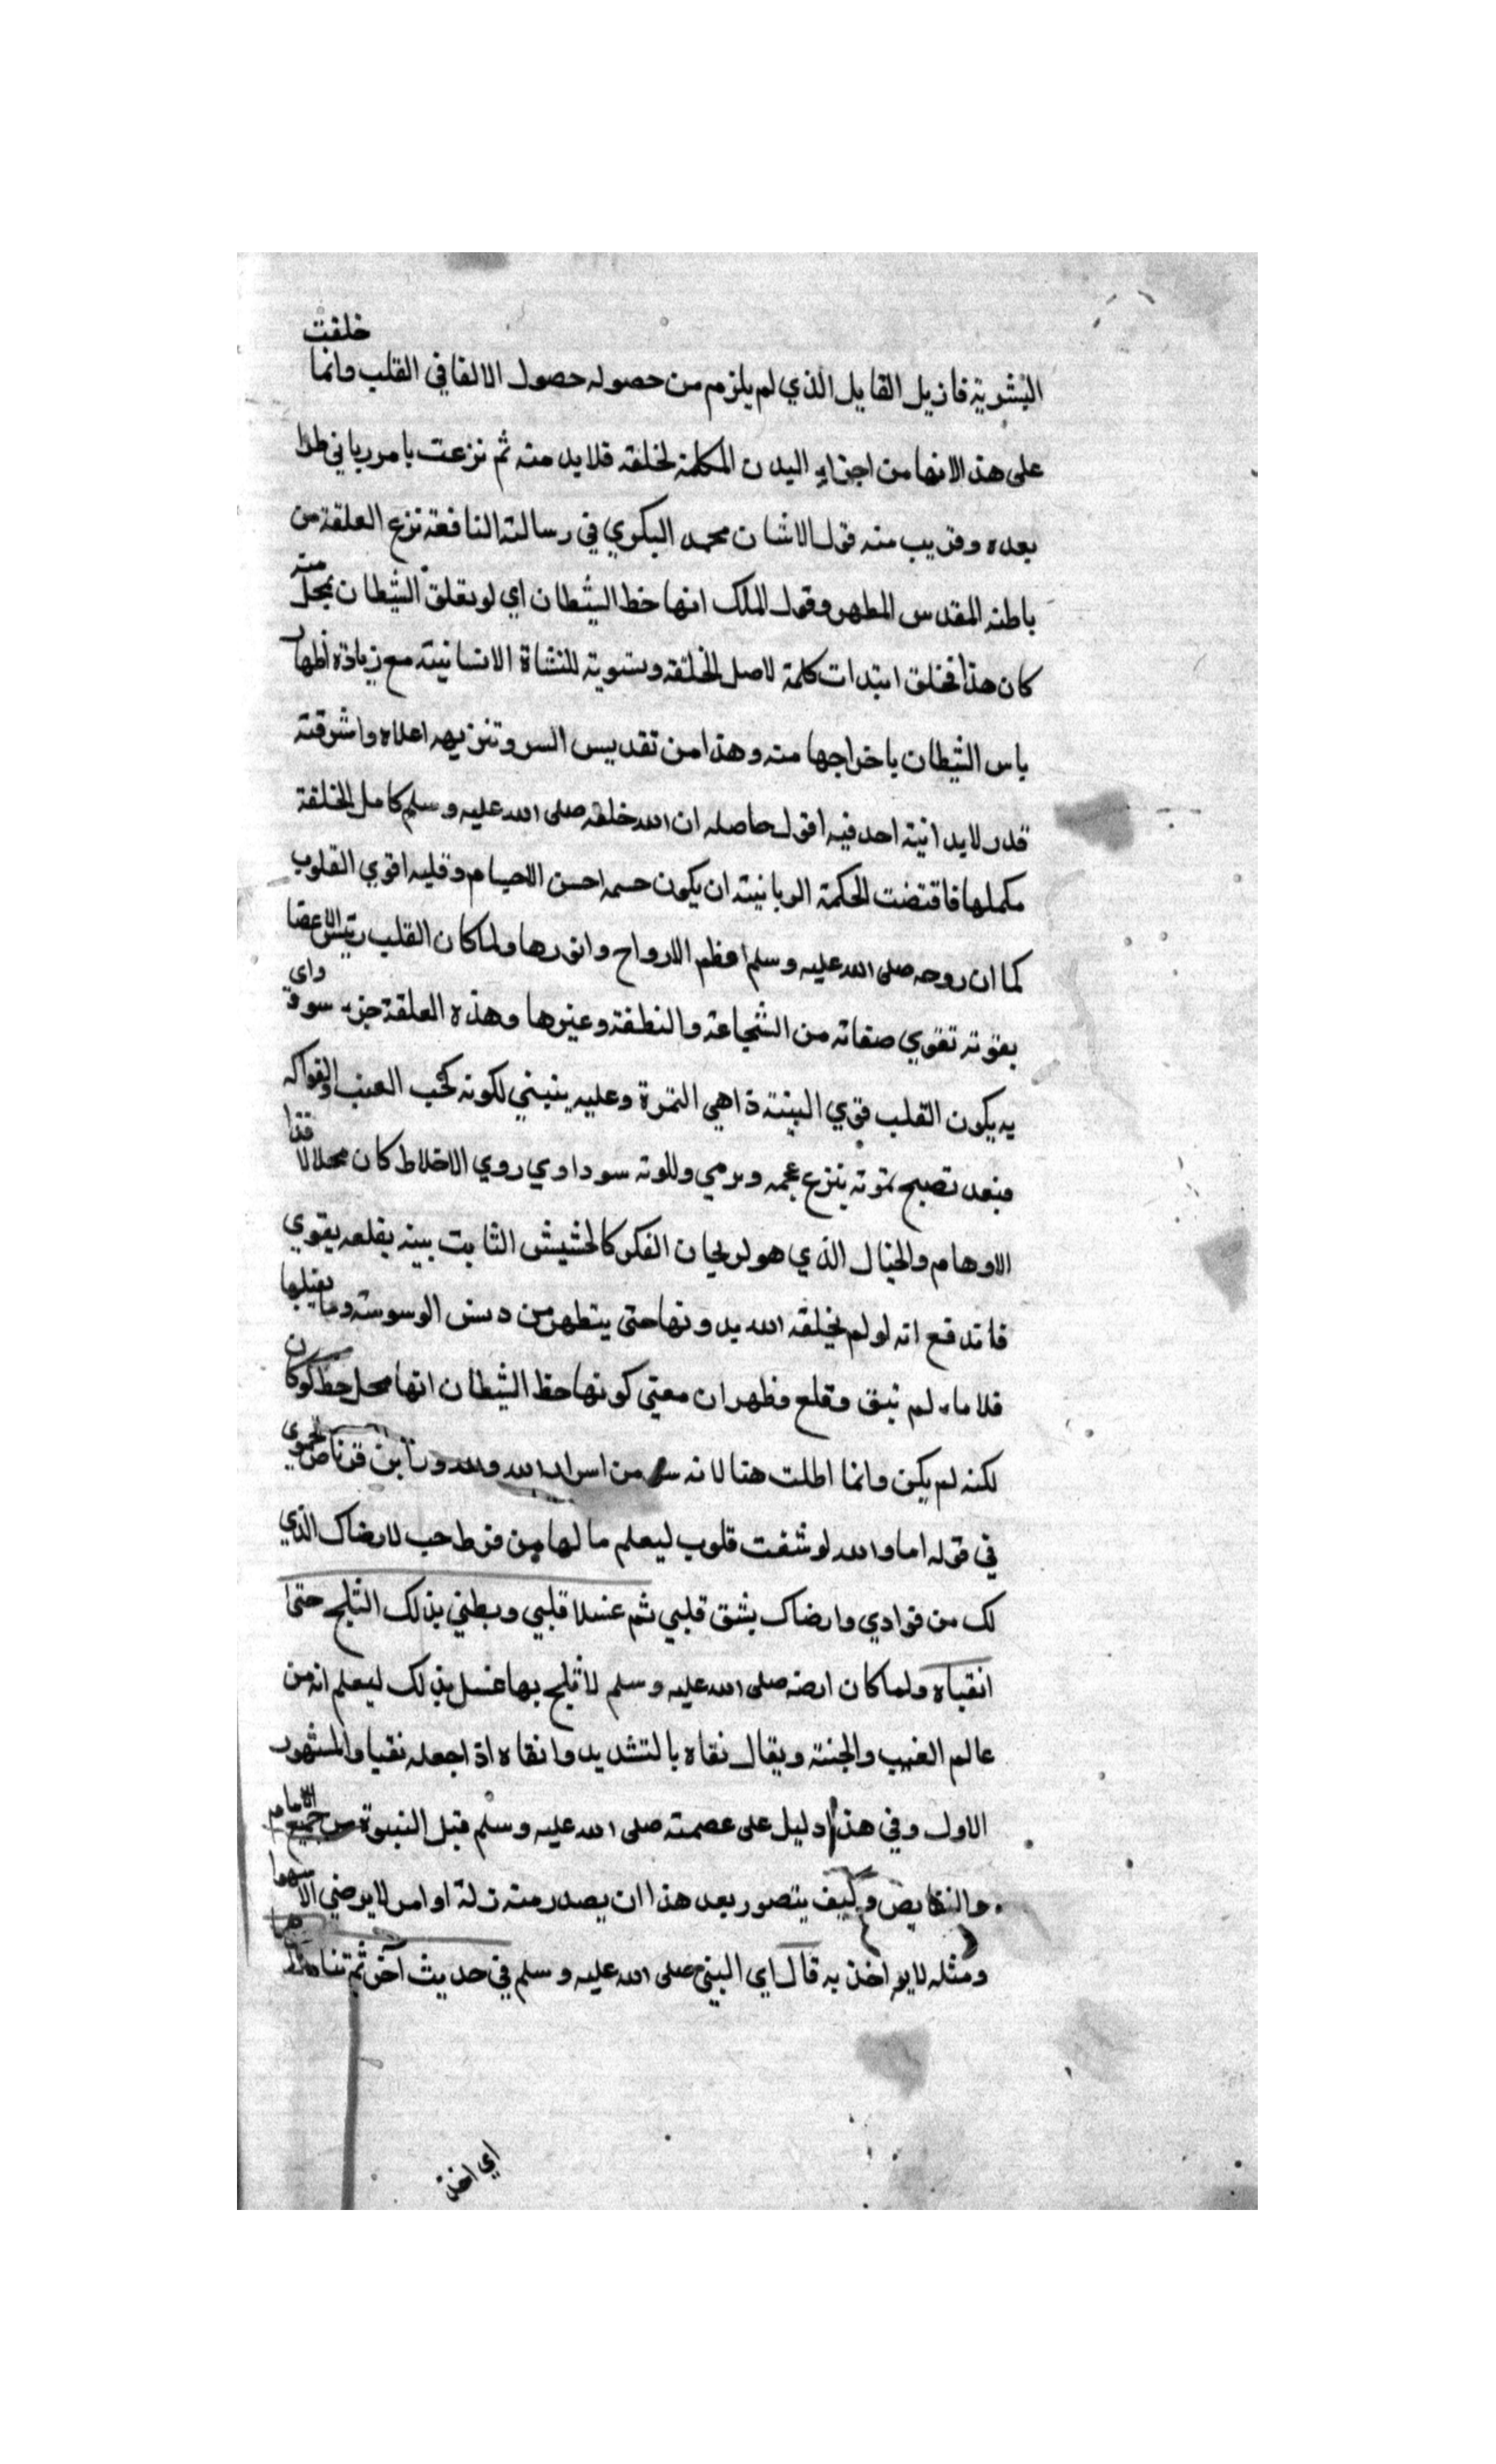 البشرية فازيل القايل الذي لم يلزم من حصوله حصول الالقا في القلب وانما خلقت
على هذا لانها من اجزاء البدن المكملة لخلقه فلابد منه ثم نزعت بامر رباني طرا
بعده وقريب منه قول الاشان محمد البكري في رسالته النافعة نزع العلقة من
باطنه المقدس المطهر وقول الملك انها حظ الشيطان اي لو تعلق الشيطان بمحل منه
كان هذا فخلق ابتدات كلمة لاصل الخلقة وتسوية للنشاة الانسانية مع زيادة اظهار
ياس الشيطان باخراجها منه وهذا من تقديس السر وتنزيهه اعلاه واشرقته
قدر لا يدانية احد فيه اقول حاصله ان الله خلقه صلى الله عليه وسلم كامل الخلقة
مكملها فاقتضت الحكمة الربانية ان يكون جسمه احسن الاجسام وقلبه اقوي القلوب
كما ان روحه صلى الله عليه وسلم اعظم الارواح وانورها ولما كان القلب رئيس الاعضا
بقوته تقوي صفاته من الشجاعة والنطفة وغيرها وهذه العلقة جزء سودا واي
به يكون القلب قوي البنية ذا هي الثمرة وعليه ينبني لكونه كحب العنب والفواكه
فبعد تصبح نموته ينزع عجمه ويرمي وللونه سوداوي روي الاخلاط كان محلا لا
الاوهام والخيال الذي هو لريحان الفكر كالحشيش الثابت بينه يقلعه يقوي
فاندفع انه لو لم يخلقه الله بدونها حتى يتطهر من دنس الوسوسة وما يقبلها
فلا ماء لم نبق وقلع وظهر ان معنى كونها حظ الشيطان انها محل حظه لو كان
لكنه لم يكن وانما اطلت هنا لانه سر من اسرار الله ولله در ابن قرناص الحموي
في قوله اما والله لو شقت قلوب ليعلم ما لها من فرط حب لارضاك الذي
لك من فوادي وارضاك بشق قلبي ثم غسلا قلبي وبطني بذلك الثلج حتى
انقياه ولما كان ارضه صلى الله عليه وسلم لا ثلج بها غسل بذلك ليعلم انه من
عالم الغيب والجنة ويقال نقاه بالتشديد وانقاه اذا جعله نقيا والمشهور
الاول وفي هذا دليل على عصمته صلى الله عليه وسلم قبل النبوة من جميع الاثام
والنقايص وكيف يتصور بعد هذا ان يصدر منه زلة او امر لا يرضي الا سهوا
ومثله لا يواخذ به قال اي النبي صلى الله عليه وسلم في حديث آخر ثم تنا
اي اخذ